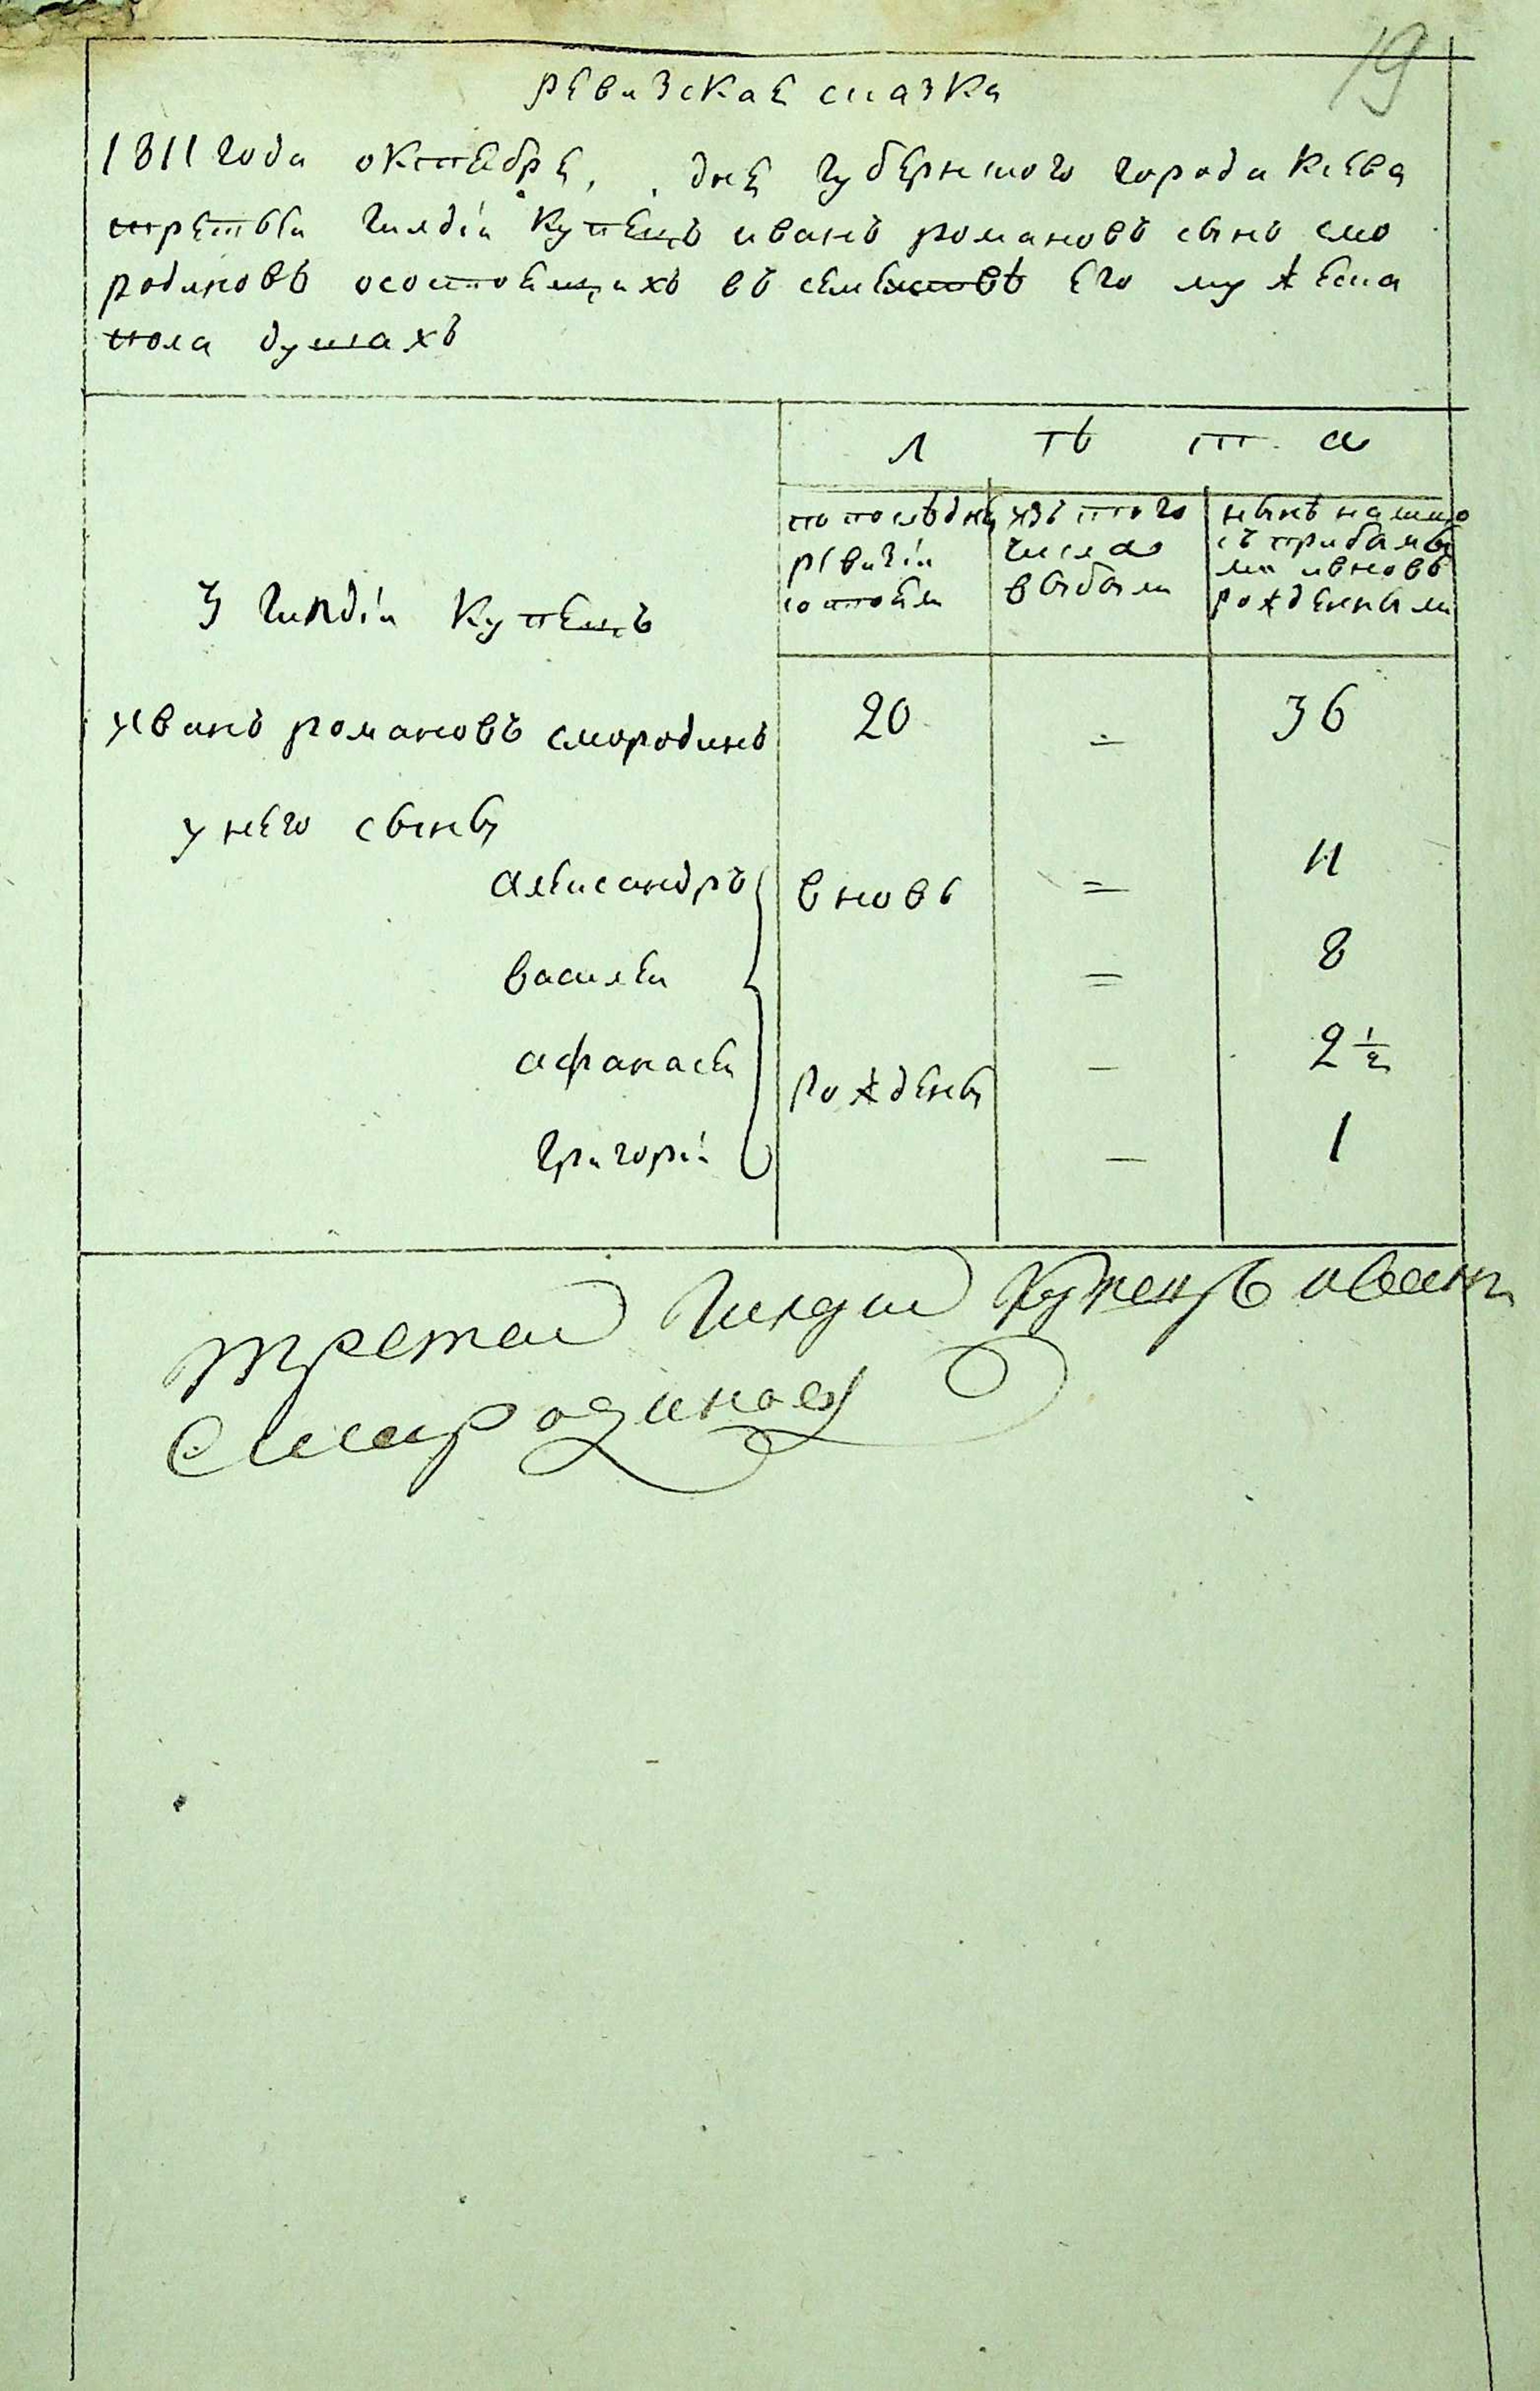 19
ревизская сказка
1811 года октября, . дня губернскаго города Кіева
третьеи гилдіи купецъ иванъ романовъ сынъ смо
родиновъ осостоящихъ въ семействѣ его мужеска
пола душахъ
лѣта
по последни
ревизіи
состояли
изъ того
числа
выбыли
нынѣ налицо
съ прибылы
ми ивновь
рожденными
3 гилдіи купецъ
иванъ романовъ смородинъ 20 = 36
у него сыны
александръ вновь = 11
василеи = 8
афанасеи рождены – 2 1/2
григоріи – 1
третеи гилдии купецъ иванъ
Смородиновъ